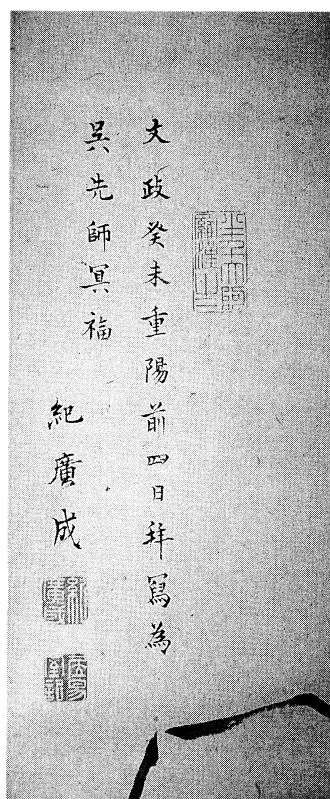 文政癸未重陽前四日拜寫為
吳先師冥福
紀廣成